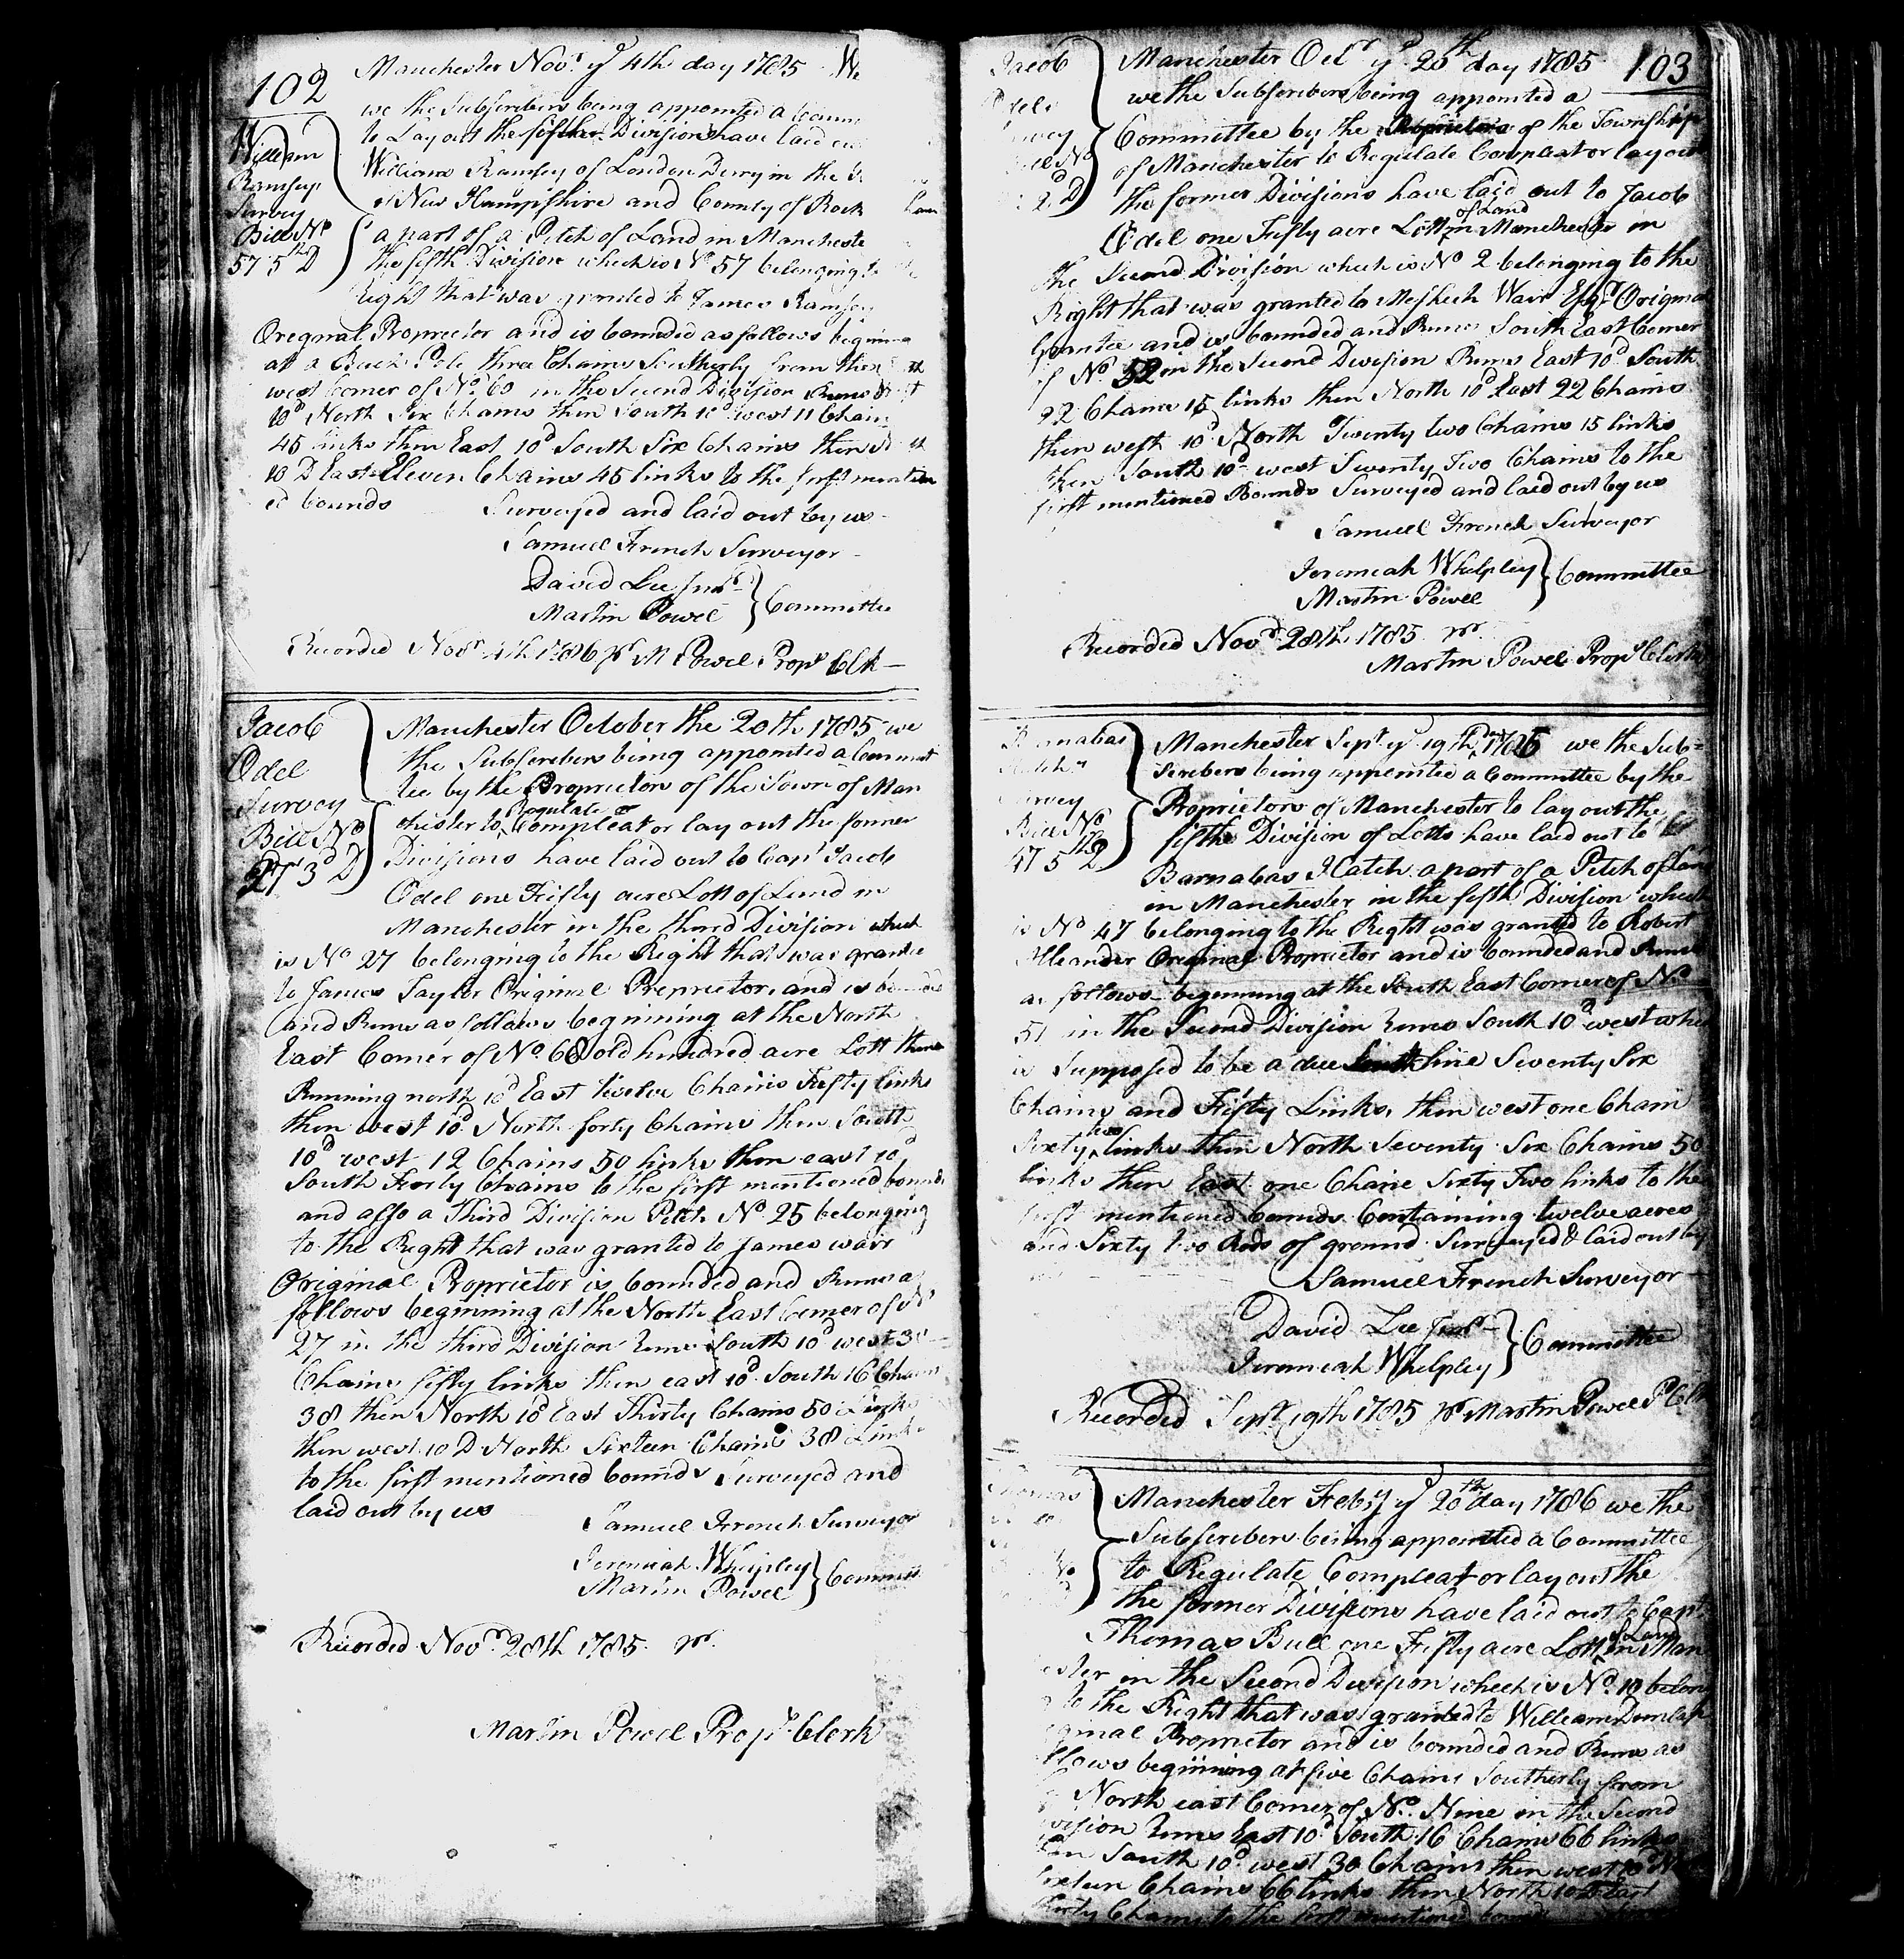 102
Manchester Novr ye 4th day 1785 We
we the Subscribers being appointed a
to Lay out the fifth Division have laid
William Ramsey of London Derry in the
of New Hampshire and County of Rock
William
Ramsey
Survey
Bill No
57 5th D
a part of a Pitch of Land in Manchester
the fifth Division which is No 57 belonging to
Right that was granted to James Ramsey
Oreginal Proprietor and is bounded as follows begining
at a Pole three Chains Southerly from the
west Corner of No 60 in the Second Division Runs
10d North Six Chains then South 10d west 11 Chain
45 links then East 10d South Six Chains then
10 D East Eleven Chains 45 links to the first mention
ed bounds Surveyed and laid out by us
Samuel French Surveyor
David Lee Junr
Martin Powel } Committee
Recorded Novr 4th 1786 pr M Powel Propr Clk
Jacob
Odel
Survey
Bill No
27 3d D
Manchester October the 20th 1785 we
the Subscribers being appointed a Commit
tee by the Proprietors of the Town of Man
chester to Regulate Compleat or lay out the former
Divisions have laid out to Capt Jacob
Odel one Fifty acre Lott of Land in
Manchester in the third Division which
is No 27 belonging to the Right that was granted
to James Tayler Original Proprietor and is
and Runs as follows beginning at the North
East Corner of No 68 old hundred acre Lott thence
Running north 10d East twelve Chains Fifty links
then west 10d North forty Chains then South
10d west 12 Chains 50 links then east 10d
South Forty Chains to the first mentioned bounds
and also a Third Division Pitch No 25 belonging
to the Right that was granted to James wair
Original Proprietor is bounded and Runs as
follows beginning at the North East Corner of No
27 in the third Division Runs South 10d west 30
Chains fifty links then east 10d South 16 Chains
38 then North 10d East Thirty Chains 50 Links
then west 10 D North Sixteen Chains 38 Links
to the first mentioned bounds Surveyed and
laid out by us
Samuel French Surveyor
Jeremiah Whelpley
Martin Powel } Committ
Recorded Novr 28th 1785 pr
Martin Powel Propr Clerk
103
Jacob
Manchester Octr ye 20th day 1785
we the Subscribers being appointed a
Committee by the Proprietors of the Township
of Manchester to Regulate Compleat or lay out
the former Divisions have laid out to Jacob
2d D
Odel one Fifty acre Lott of Land in Manchester in
the Second Division which is No 2 belonging to the
Right that was granted to Meshech Wair Esqr Original
Grantee and is bounded and Runs South East Corner
of No 52 in the Second Division Runs East 10d South
22 Chains 15 links then North 10d East 22 Chains
then west 10d North Twenty two Chains 15 links
then South 10d west Twenty Two Chains to the
first mentioned Bounds Surveyed and laid out by us
Samuel French Surveyor
Jeremiah Whelpley
Martin Powel } Committee
Recorded Novr 28th 1785 pr
Martin Powel Propr Clerk
Barnabas
Survey
Bill No
47 5th D
Manchester Sept ye 19th day 1785 we the Sub=
scribers being appointed a Committee by the
Proprietors of Manchester to lay out the
fifth Division of Lotts have laid out to
Barnabas Hatch a part of a Pitch of Land
in Manchester in the fifth Division which
is No 47 belonging to the Right was granted to Robert
Alleander Original Proprietor and is bounded and Runs
as follows beginning at the South East Corner of No
51 in the Second Division Runs South 10d west which
is Supposed to be a due South line Seventy Six
Chains and Fifty Links, then west one Chain
Sixty two links then North Seventy Six Chains 50
links then East one Chane Sixty Two links to the
first mentioned bounds Containing twelve acres
and Sixty two Rods of ground Surveyed & laid out by
Samuel French Surveyor
David Lee Junr
Jeremiah Whelpley } Committee
Recorded Sept 19th 1785 pr Martin Powel P Clk
Thomas
Manchester Feby ye 20th day 1786 we the
Subscribers being appointed a Committee
to Regulate Compleat or lay out the
the former Divisions have laid out to Capt
Thomas Bull one Fifty acre Lott of Land in Man
ester in the Second Division which is No 10 belong
to the Right that was granted to William Dunlap
ginal Proprietor and is bounded and Runs as
llows beginning at five Chains Southerly from
North east Corner of No Nine in the Second
vision Runs East 10d South 16 Chains 66 links
South 10d west 30 Chains then west 10d
Sixteen Chains 66 links then North 10 D East
thirty Chains to the first mentioned bounds